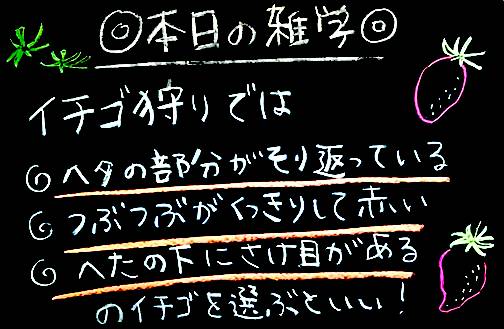 ◎本日の雑学◎
イチゴ狩りでは
ヘタの部分がそり返っている
つぶつぶがくっきりして赤い
へたの下にさけ目がある
のイチゴを選ぶといい！